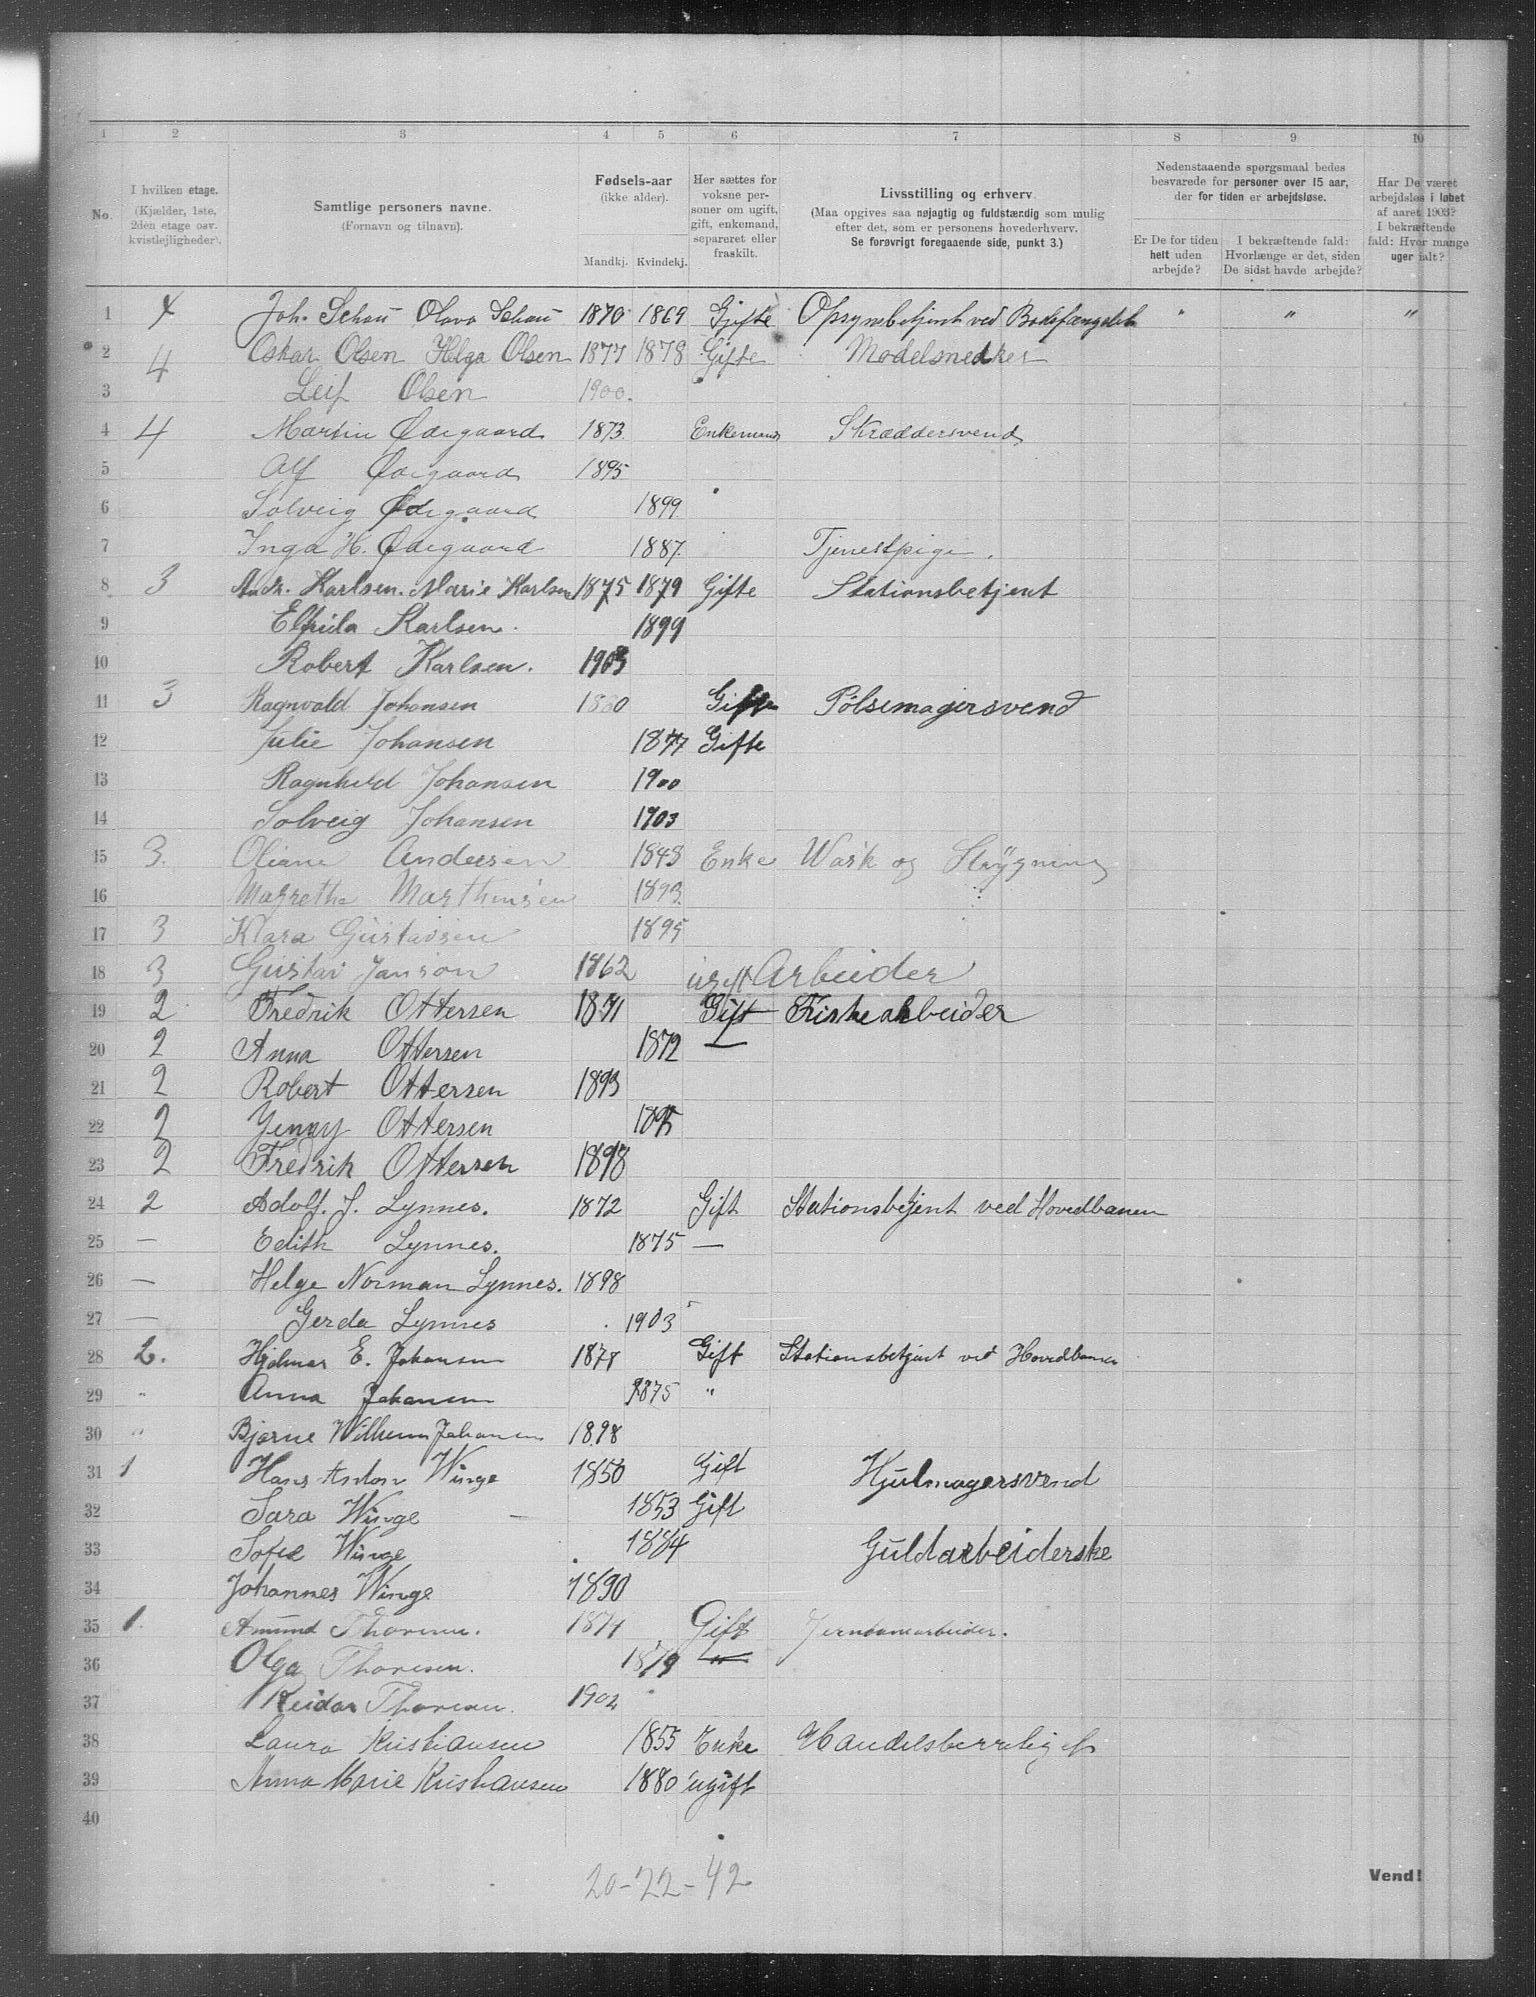 1 2 3 4 5 6 7 8 9 10
No.
I hvilken etage.
(Kjælder, 1ste,
2den etage osv.
kvistlejligheder).
Samtlige personers navne.
(Fornavn og tilnavn).
Fødsels-aar
(ikke alder).
Mandkj. Kvindekj.
Her sættes for
voksne per-
soner om ugift,
gift, enkemand,
separeret eller
fraskilt.
Livsstilling og erhverv.
(Maa opgives saa nøjagtig og fuldstændig som mulig
efter det, som er personens hovederhverv.
Se forøvrigt foregaaende side, punkt 3.)
Nedenstaaende spørgsmaal bedes
besvarede for personer over 15 aar,
der for tiden er arbejdsløse.
Er De for tiden
helt uden
arbejde?
I bekræftende fald:
Hvorlænge er det, siden
De sidst havde arbejde?
Har De været
arbejdsløs i løbet
af aaret 1903?
I bekræftende
fald: Hvor mange
uger ialt?
1 4 Joh. Schau Olava Schau 1870 1869 Gifte Opsynsbetjent ved Bodsfængslet " " "
2 4 Oskar Olsen Helga Olsen 1877 1878 Gifte Modelsnedker
3 Leif Olsen 1900.
4 4 Martin Ødegaard 1873 Enkemand Skræddersvend
5 Alf Ødegaard 1895
6 Solveig Ødegaard 1899
7 Inga H. Ødegaard 1887. Tjenestpige.
8 3 Andr. Karlsen. Marie Karlsen 1875 1879 Gifte Stationsbetjent
9 Elfrida Karlsen. 1899
10 Robert Karlsen. 1903
11 3 Ragnvald Johansen 1880 Gifte Pölsemagersvend
12 Julie Johansen 1877 Gifte
13 Ragnhild Johansen 1900
14 Solveig Johansen 1903
15 3. Oliane Andersen 1848 Enke Wask og Strygning
16 Magrethe Marthinsen 1893
17 3 Klara Gustavsen 1895
18 3 Gustav Janson 1862 ugift Arbeider
19 2 Fredrik Ottersen 1871 Gift Fiskearbeider
20 2 Anna Ottersen 1872 —
21 2 Robert Ottersen 1893
22 2 Jenny Ottersen 1895
23 2 Fredrik Ottersen 1898
24 2 Adolf. J. Lynnes. 1872 Gift Stationsbetjent ved Hovedbanen
25 — Edith Lynnes. 1875 —
26 — Helge Norman Lynnes. 1898
27 — Gerda Lynnes 1903
28 2. Hjalmar E. Johansen 1878 Gift Stationsbetjent ved Hovedbanen
29 " Anna Johansen 1875 "
30 " Bjarne Wilhelm Johansen 1898
31 1 Hans Anton Winge 1850 Gift Hjulmagersvend
32 Sara Winge 1853 Gift
33 Sofie Winge 1884 Guldarbeiderske
34 Johannes Winge 1890
35 1. Amund Thoresen. 1871 Gift Jernbanearbeider.
36 Olga Thoresen. 1879 "
37 Reidar Thoresen. 1902
38 Laura Kristiansen 1855 Enke Handelsberretiget
39 Anna Marie Kristiansen 1880 ugift
40
20-22-42
Vend!